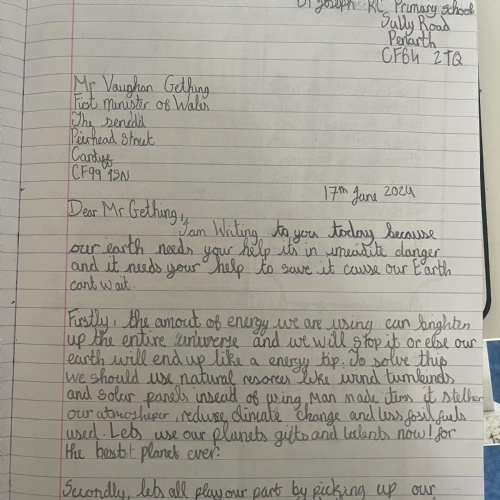 St Joseph RC Primary school
Sully Road
Penarth
CF64 2TQ
Mr Vaughan Gething
First Minister of Wales
The senedd
Peirhead Street
Cardiff
CF99 1SN
17th June 2024
Dear Mr Gething,
I am Writing to you today because
our earth needs your help its in imeadite danger
and it needs your help to save it cause our Earth
cant wait.
Firstly, the amout of energy we are using can brighten
up the entire universe and we will stop it or else our
earth will end up like a energy tip. To solve this
we should use natural resorces like wind turnbinds
and solar panels insead of using man made item it
our atmosheper, reduse climate change and less fosil fuels
used. Lets use our planets gifts and talents now! for
the best planet ever!
Secondly, lets all play our part by picking up our